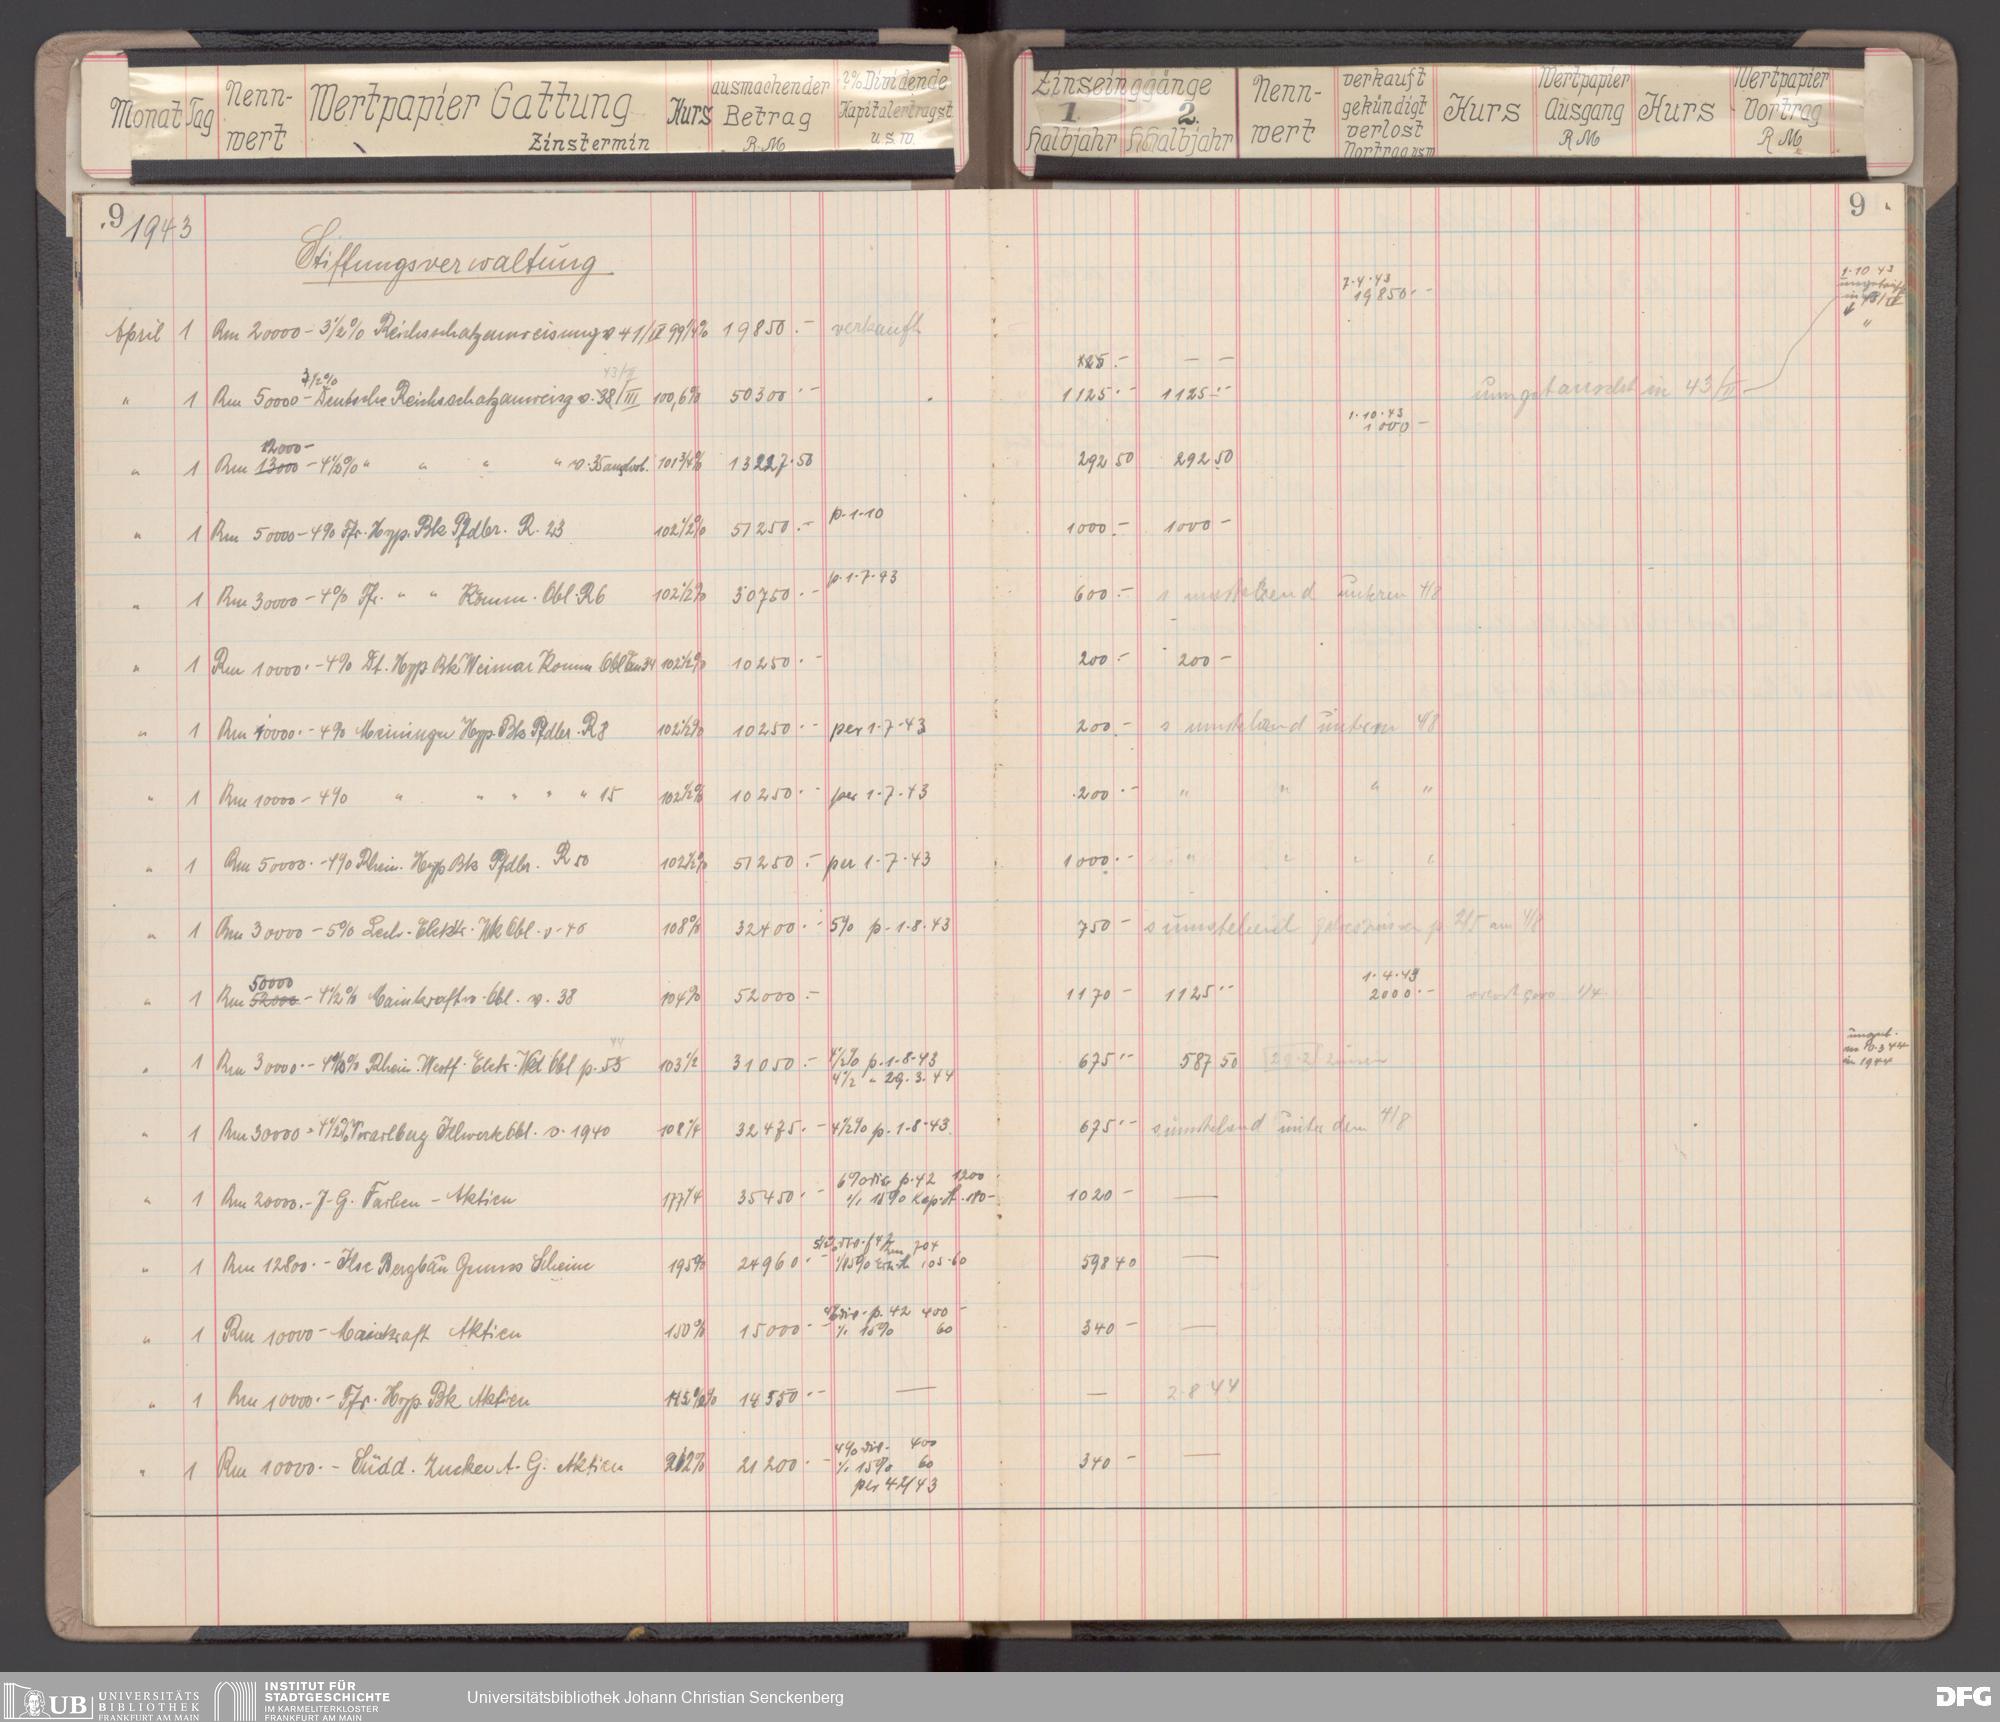 Monat Tag Nenn-wert Wertpapier Gattung Zinstermin Kurs ausmachender Betrag R.M. % Dividende Kapitalertragst. u.s.w.
Zinseinggänge 1. Halbjahr 2. Halbjahr Nenn-wert verkauft gekündigt verlost Vortrag usw Kurs Wertpapier Ausgang R M Kurs Wertpapier Vortrag R M
9 1943 9
Stiftungsverwaltung
7.4.43 1.10 43
19850.-
April 1 Rm 20000 - 3½% Reichsschatzanweisung v 41/IV 99¼% 19850.- verkauft
125.- — —
3½% 43/II
" 1 Rm 50000 - Deutsche Reichsschatzanweisg v. 38/III 100,6% 50300.- 1125.- 1125.- umgetauscht in 43/II
1.10.43
1000 -
12000 -
" 1 Rm 13000 - 4½% " " " " v. 35 auslosb. 101¾% 13227.50 292 50 292 50
" 1 Rm 50000 - 4% Ffr. Hyp. Bk Pfdbr. R. 23 102½% 51250.- p. 1.10 1000.- 1000 -
" 1 Rm 30000 - 4% Ffr. " " Komm. Obl. R6 102½% 30750.- p. 1.7.43 600.- s umstehend unterm 4/8
" 1 Rm 10000.- 4% Dt. Hyp Bk Weimar Komm Obl Em 34 102½% 10250.- 200.- 200 -
" 1 Rm 10000.- 4% Meininger Hyp. Bk Pfdbr. R8 102½% 10250.- per 1.7.43 200.- s umstehend unterm 4/8
" 1 Rm 10000 - 4% " " " " " 15 102½% 10250.- per 1.7.43 200.- " " " "
" 1 Rm 50000.- 4% Rhein. Hyp Bk Pfdbr. R 50 102½% 51250.- per 1.7.43 1000.- " " " "
" 1 Rm 30000 - 5% Lech-Elektr. Wk Obl. v. 40 108% 32400.- 5% p. 1.8.43 750 - s umstehend
50000 1.4.43
" 1 Rm 52000 - 4½% Mainkraftw. Obl. v. 38 104% 52000.- 1170 - 1125.- 2000.-
44
" 1 Rm 30000.- 4½% Rhein. Westf. Elektr. Wk Obl p. 53 103½ 31050.- 4½% p. 1.8.43 675.- 587 50 29.2 Zinsen
4½ " 29.3.44
" 1 Rm 30000 - 4½% Vorarlberg Illwerk Obl. v. 1940 108¼ 32475.- 4½% p. 1.8.43 675.- s umstehend unter dem 4/8
" 1 Rm 20000.- J.G. Farben - Aktien 177¼ 35450.- 6% Div p. 42 1200 1020 - —
./. 15% Kap. St. 180 -
" 1 Rm 12800.- Ilse Bergbau Genuss Scheine 195% 24960.- 704 598 40 —
105.60
" 1 Rm 10000 - Mainkraft Aktien 150% 15000.- 4% Div. p. 42 400 - 340 - —
./. 15% 60
" 1 Rm 10000.- Ffr. Hyp. Bk Aktien 145½% 14550.- — — 2.8.44
" 1 Rm 10000.- Südd. Zucker A.G. Aktien 212% 21200.- 4% Div. 400 340 - —
./. 15% 60
per 42/43
UB UNIVERSITÄTS BIBLIOTHEK FRANKFURT AM MAIN
INSTITUT FÜR STADTGESCHICHTE IM KARMELITERKLOSTER FRANKFURT AM MAIN
Universitätsbibliothek Johann Christian Senckenberg
DFG